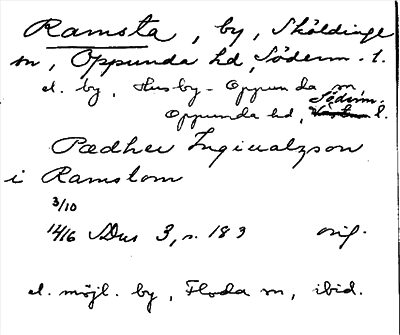 Ramsta, by, Sköldinge
sn, Oppunda hd, Söderm. l.
el. by, Husby-Oppunda sn
Oppunda hd, Söderm. l.
Pædher Ingiualzson
i Ramstom
3/10
1416 SDns 3, s. 183 orig.
el. möjl. by, Floda sn, ibid.